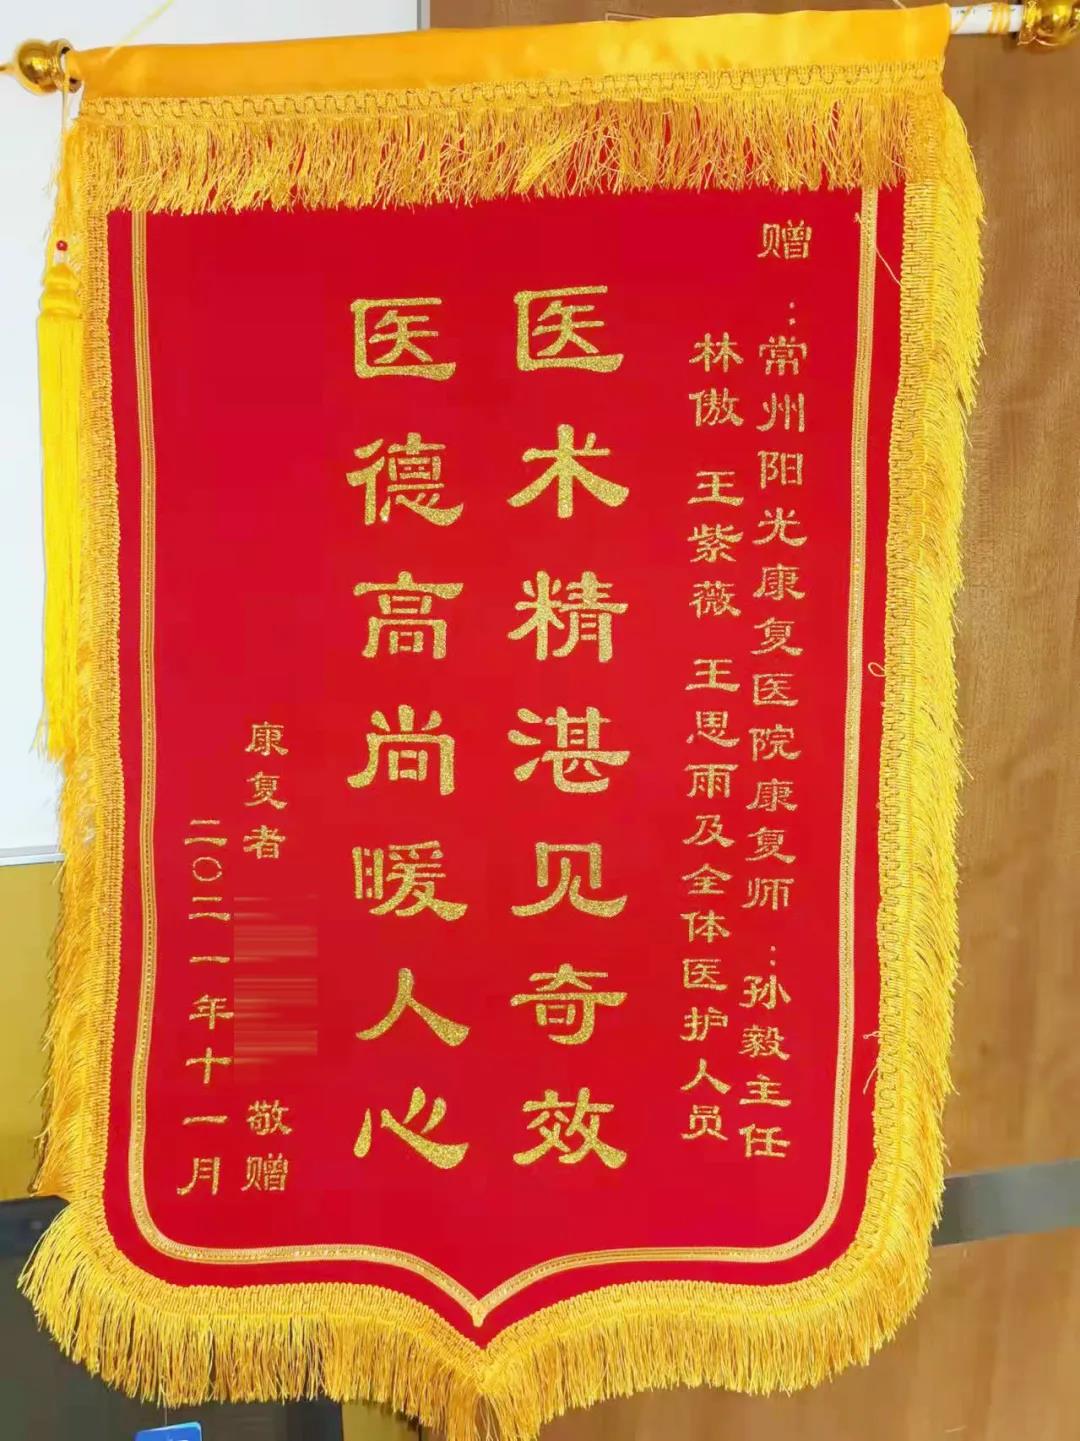 赠：常州阳光康复医院康复师：孙毅主任
林傲 王紫薇 王思雨及全体医护人员
医术精湛见奇效
医德高尚暖人心
康复者 敬赠
二〇二一年十一月